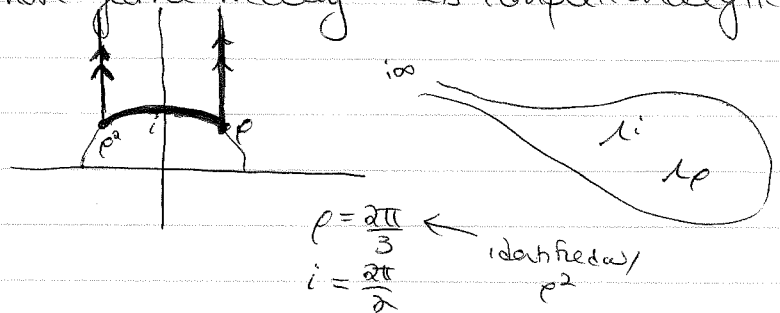 i∞
i
ρ²
ρ
i
ρ
ρ = 2π/3 ← identified w/
ρ²
i = 2π/2